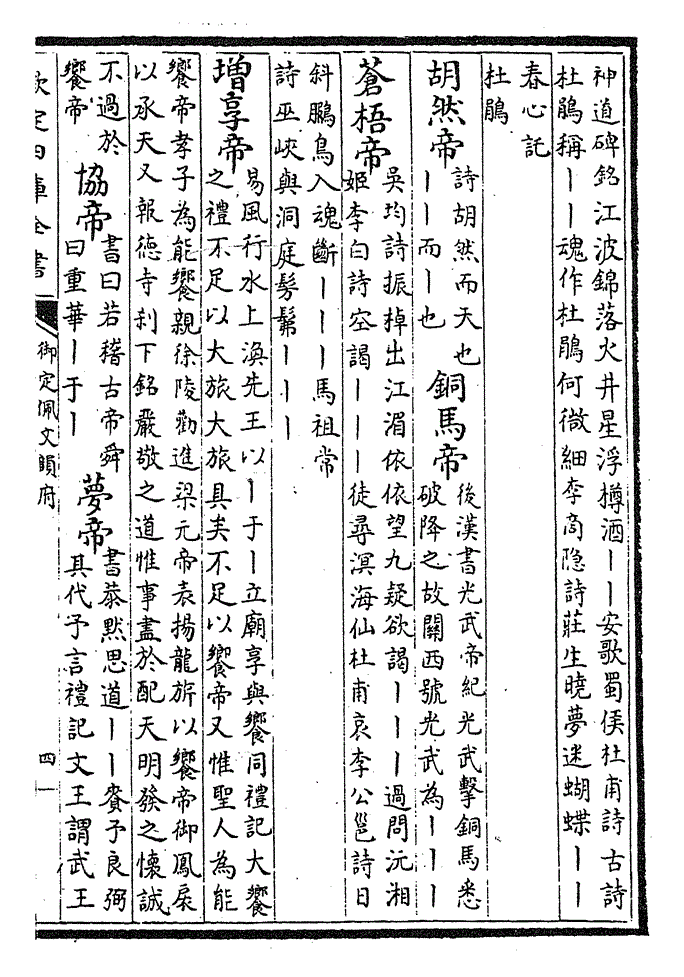 神道碑銘江波錦落火井星浮樽酒丨丨安歌蜀侯杜甫詩古詩
杜鵑稱丨丨魂作杜鵑何微細李商隱詩莊生曉夢迷蝴蝶丨丨
春心託
杜鵑
胡然帝
詩胡然而天也
丨丨而丨也
銅馬帝
後漢書光武帝紀光武擊銅馬悉
破降之故關西號光武為丨丨丨
蒼梧帝
吳均詩振掉出江湄依依望九疑欲謁丨丨丨過問沅湘
姬李白詩空謁丨丨丨徒尋溟海仙杜甫哀李公邕詩日
斜鵩鳥入魂斷丨丨丨馬祖常
詩巫峽與洞庭髣髴丨丨丨
增享帝
易風行水上渙先王以丨于丨立廟享與饗同禮記大饗
之禮不足以大旅大旅具矣不足以饗帝又惟聖人為能
饗帝孝子為能饗親徐陵勸進梁元帝表揚龍旂以饗帝御鳳扆
以承天又報德寺刹下銘嚴敬之道惟事盡於配天明發之懷誠
不過於
饗帝
協帝
書曰若稽古帝舜
曰重華丨于丨
夢帝
書恭默思道丨丨賚予良弼
其代予言禮記文王謂武王
欽定四庫全書
御定佩文韻府
四一